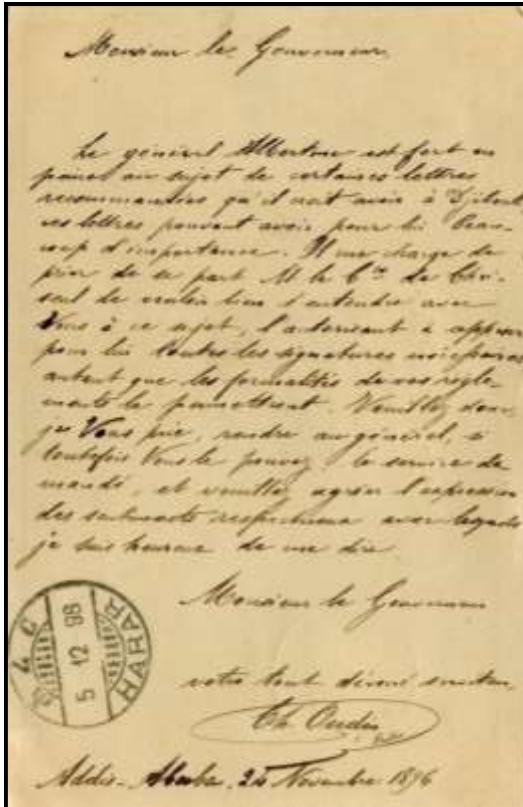 Monsieur le Gouverneur,
Le général Albertone est fort en
peine au sujet de certaines lettres
recommandées qu'il croit avoir à Djibouti
ces lettres pouvant avoir pour lui beau-
coup d'importance. Il me charge de
prier de sa part M le Cte de Choi-
seul de vouloir bien s'entendre avec
Vous à ce sujet, l'autorisant à apposer
pour lui toutes les signatures nécessaires
autant que les formalités de vos règle-
ments le permettront. Veuillez donc,
je Vous prie, rendre au général, si
toutefois Vous le pouvez, le service de-
mandé, et veuillez agréer l'expression
des sentiments respectueux avec lesquels
je suis heureux de me dire
Monsieur le Gouverneur
votre tout dévoué serviteur,
Th Oudin
Addis-Abeba, 24 Novembre 1896
HARAR
5 12 96